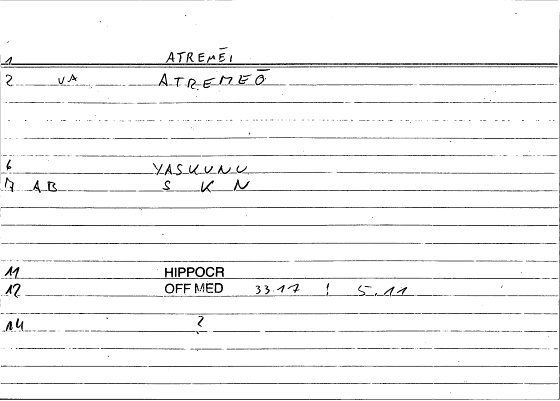 1 ATREMĒI
2 VA ATREMEŌ
6 YASKUNU
7 AB S K N
11 HIPPOCR
12 OFF MED 33.17 ! 5.11
14 ?